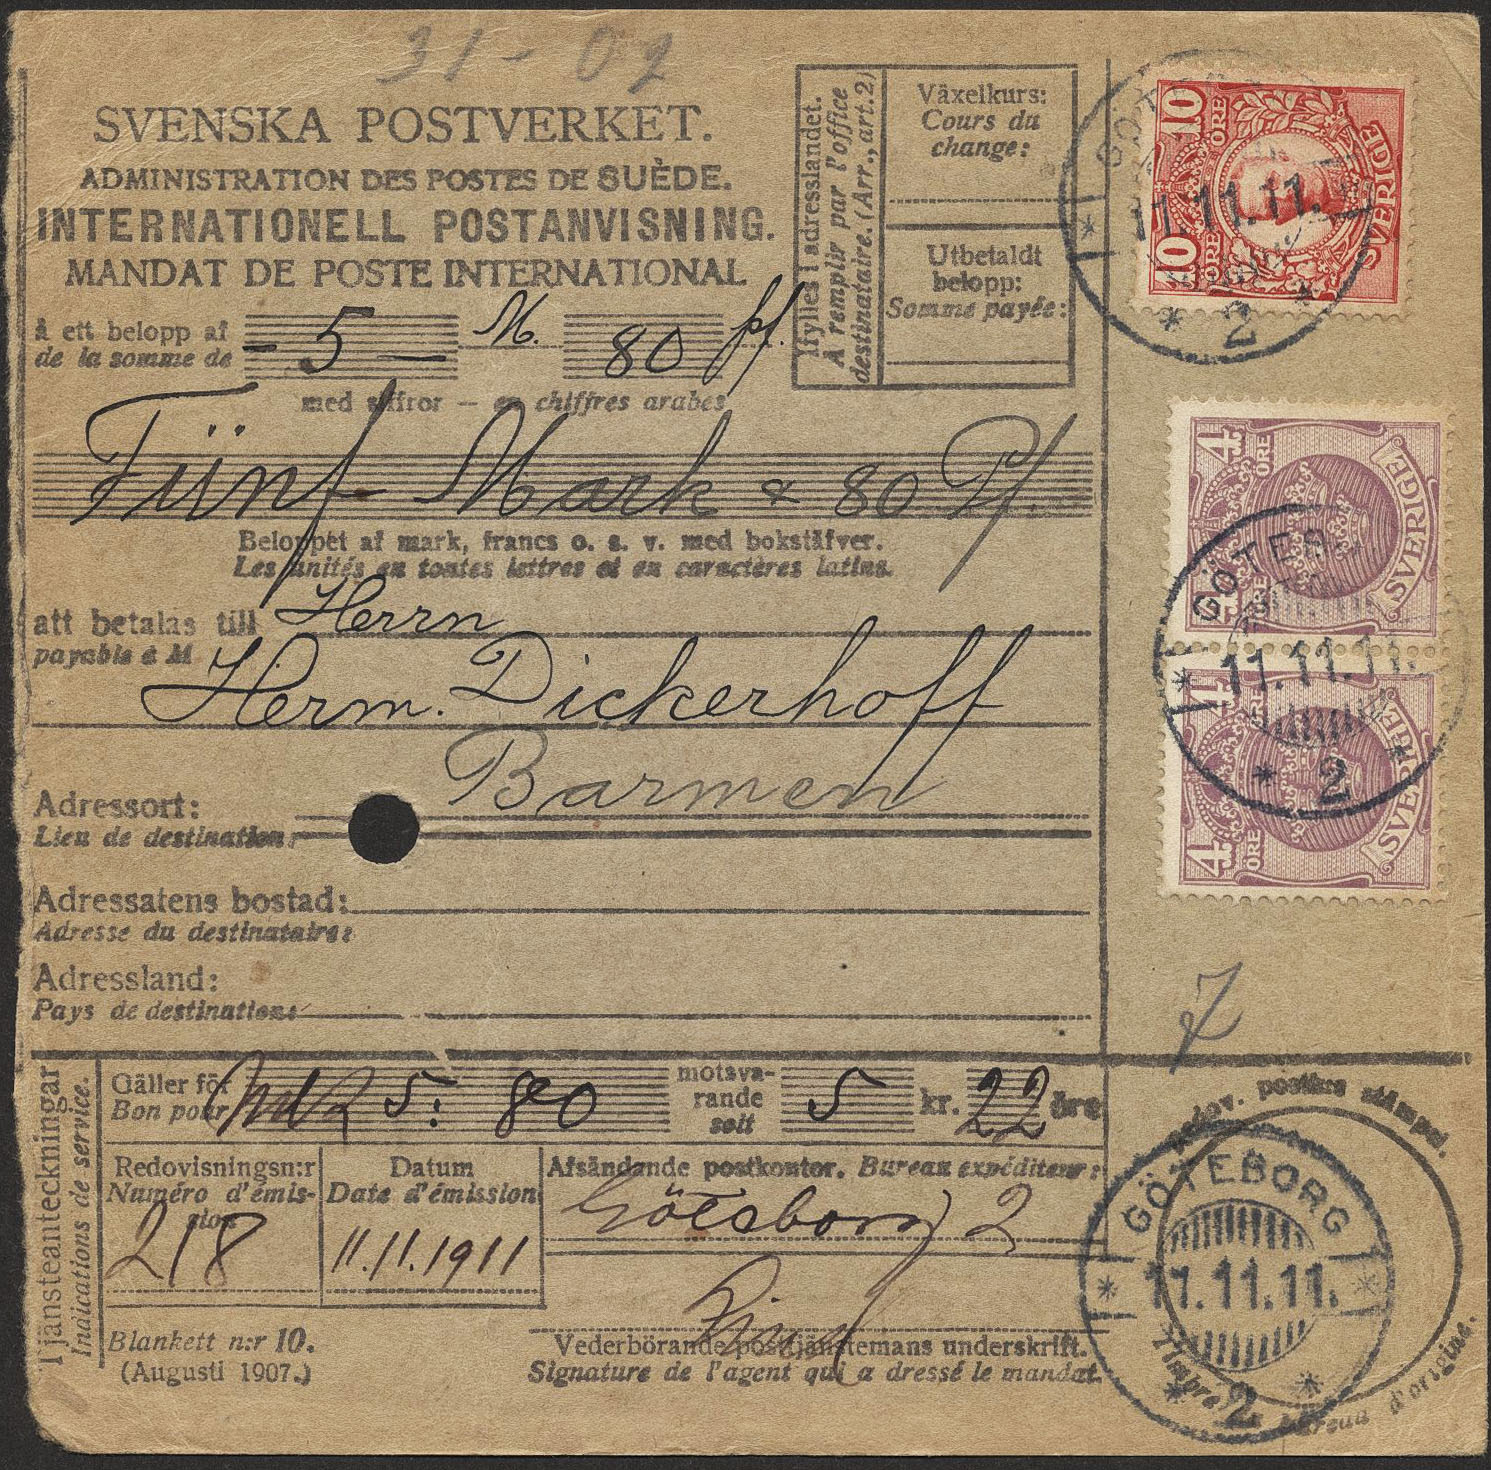 31-02
SVENSKA POSTVERKET.
ADMINISTRATION DES POSTES DE SUÈDE.
INTERNATIONELL POSTANVISNING.
MANDAT DE POSTE INTERNATIONAL
Ifylles i adresslandet.
A remplir par l'office
destinataire. (Arr., art. 2)
Växelkurs:
Cours du
change:
Utbetaldt
belopp:
Somme payée:
å ett belopp af
de la somme de
- 5 - M. 80 pf.
med siffror — en chiffres arabes
Fünf Mark & 80 Pf.
Beloppet af mark, francs o. s. v. med bokstäfver.
Les unités en toutes lettres et en caractères latins.
att betalas till Herrn
payable à M
Herm. Dickerhoff
Adressort: Barmen
Lieu de destination:
Adressatens bostad:
Adresse du destinataire:
Adressland:
Pays de destination:
10 ÖRE
10 ÖRE
SVERIGE
GÖTEBORG
11.11.11.
2
4 ÖRE
4 ÖRE
SVERIGE
GÖTEB
11.11.11.
2
4 ÖRE
4 ÖRE
SVERIGE
7
Tjänsteanteckningar
Indications de service.
Gäller för
Bon pour
Mk 5: 80
motsva-
rande
soit
5 kr. 22 öre
Redovisningsn:r
Numéro d'émis-
sion
218
Datum
Date d'émission
11.11.1911
Afsändande postkontor. Bureau expéditeur:
Göteborg 2
Blankett n:r 10.
(Augusti 1907.)
Vederbörande posttjänstemans underskrift.
Signature de l'agent qui a dressé le mandat.
postens stämpel.
GÖTEBORG
11.11.11.
2
Timbre bureau d'origine.